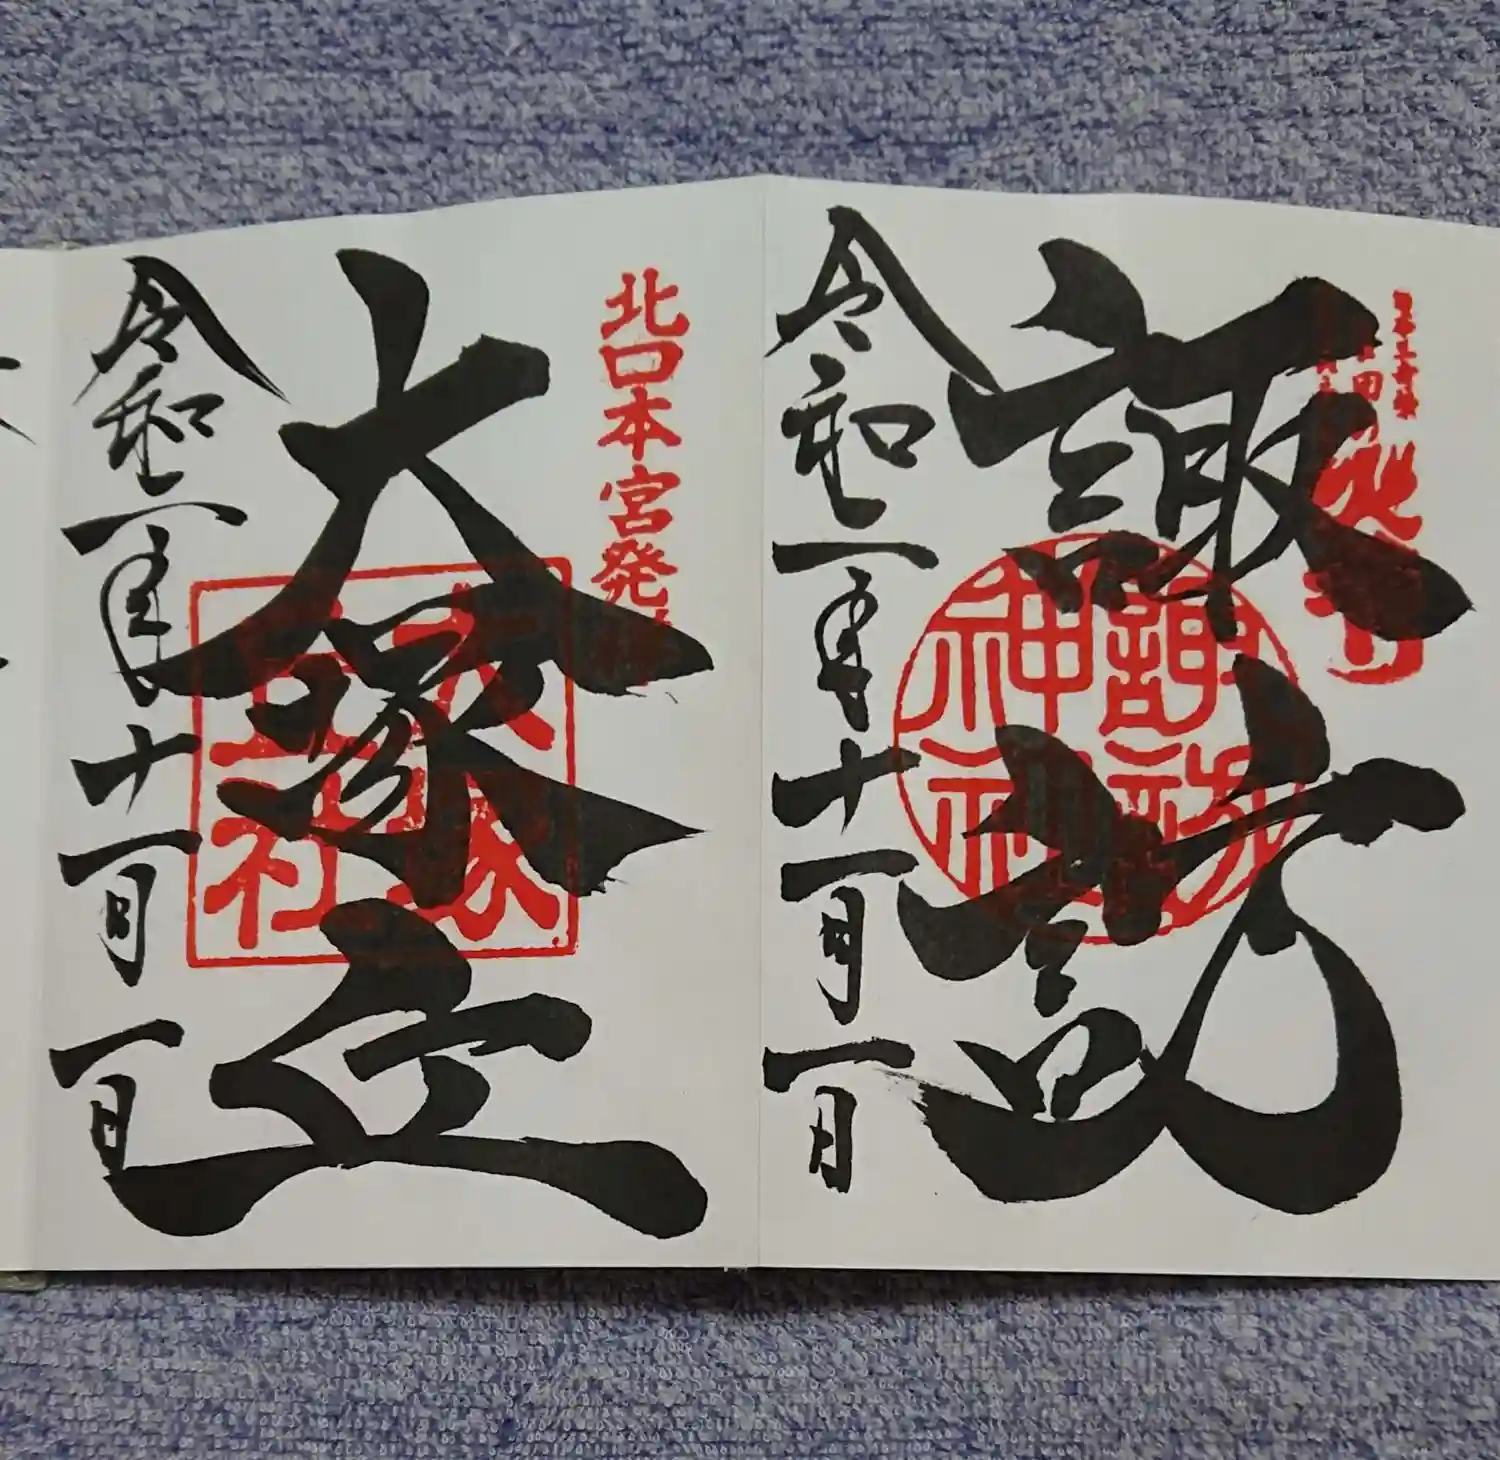 日本三奇祭
諏訪
諏訪
神社
令和二年十一月一日
北口本宮発祥
大塚丘
大塚
丘社
令和二年十一月一日